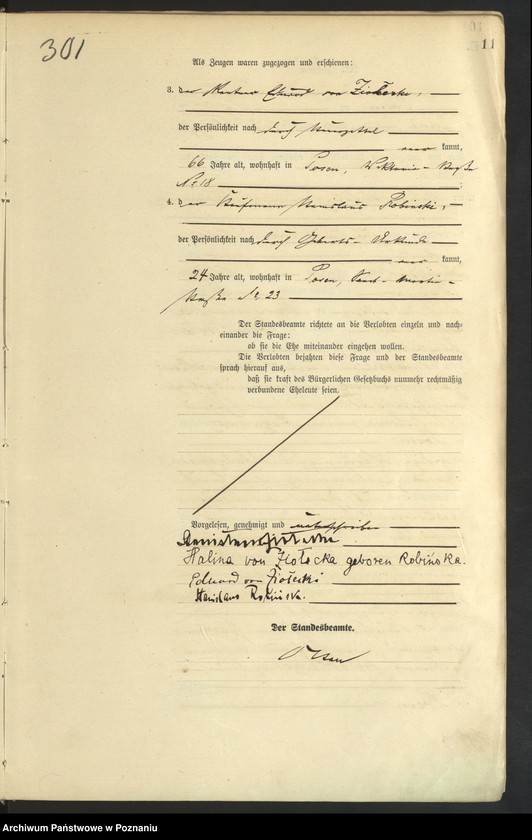 301
11
Als Zeugen waren zugezogen und erschienen:
3. der Rentner Eduard von Ziołecki,
der Persönlichkeit nach durch
kannt,
66 Jahre alt, wohnhaft in Posen, Viktoria-Straße
No 18
4. der Kaufmann Stanislaus Robinski,
der Persönlichkeit nach durch Geburts-Urkunde
kannt,
24 Jahre alt, wohnhaft in Posen, Sanct-Martin-
straße No 23
Der Standesbeamte richtete an die Verlobten einzeln und nach-
einander die Frage:
ob sie die Ehe miteinander eingehen wollen.
Die Verlobten bejahten diese Frage und der Standesbeamte
sprach hierauf aus,
daß sie kraft des Bürgerlichen Gesetzbuchs nunmehr rechtmäßig
verbundene Eheleute seien.
Vorgelesen, genehmigt und unterschrieben
Halina von Ziołecka geboren Robińska.
Eduard von Ziołecki
Stanislaus
Der Standesbeamte.
Archiwum Państwowe w Poznaniu